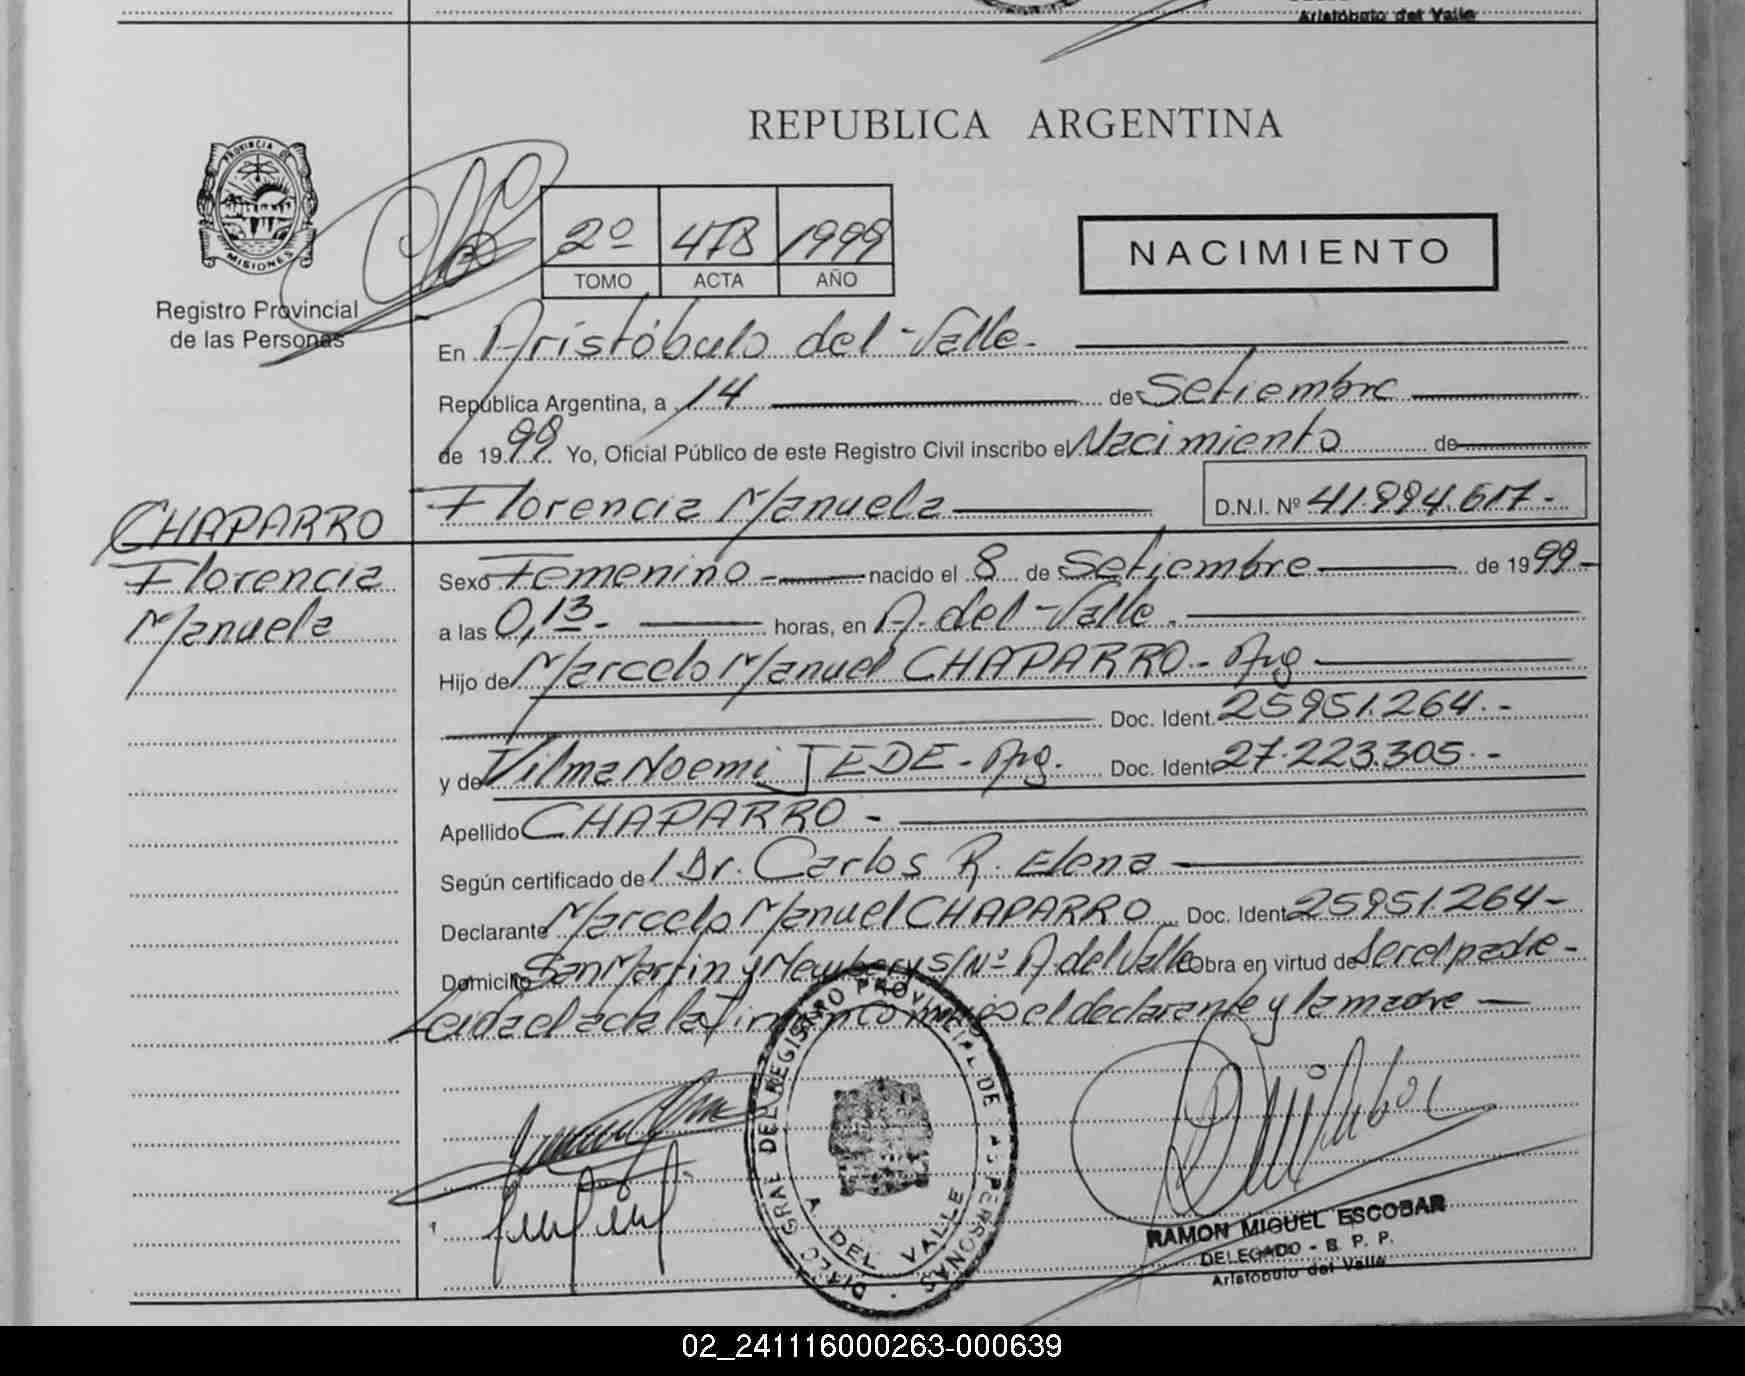 Aristóbulo del Valle
REPUBLICA ARGENTINA
PROVINCIA DE
MISIONES
Registro Provincial
de las Personas
2º 478 1999
TOMO ACTA AÑO
NACIMIENTO
En Aristóbulo del Valle.
República Argentina, a 14 de Setiembre
de 1999 Yo, Oficial Público de este Registro Civil inscribo el Nacimiento de
Florencia Manuela D.N.I. Nº 41.994.617.-
CHAPARRO
Florencia
Manuela
Sexo Femenino - nacido el 8 de Setiembre de 1999-
a las 0,13- horas, en A. del Valle.
Hijo de Marcelo Manuel CHAPARRO.- Arg
Doc. Ident. 25951.264.-
y de Vilma Noemi JEDE - Arg. Doc. Ident 27.223.305.-
Apellido CHAPARRO -
Según certificado de / Dr. Carlos R. Elena
Declarante Marcelo Manuel CHAPARRO Doc. Ident 25951.264-
Domicilio San Martin y Newbery s/Nº A. del Valle Obra en virtud de ser el padre -
Leida el acta la firman conmigo el declarante y la madre
DEL REGISTRO PROVINCIAL DE LAS PERSONAS
A. DEL VALLE
RAMON MIGUEL ESCOBAR
DELEGADO - R. P. P.
Aristóbulo del Valle
02_241116000263-000639